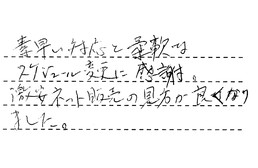 素早い対応と柔軟な
スケジュール変更に感謝。
激安ネット販売の見方が良くなり
ました。